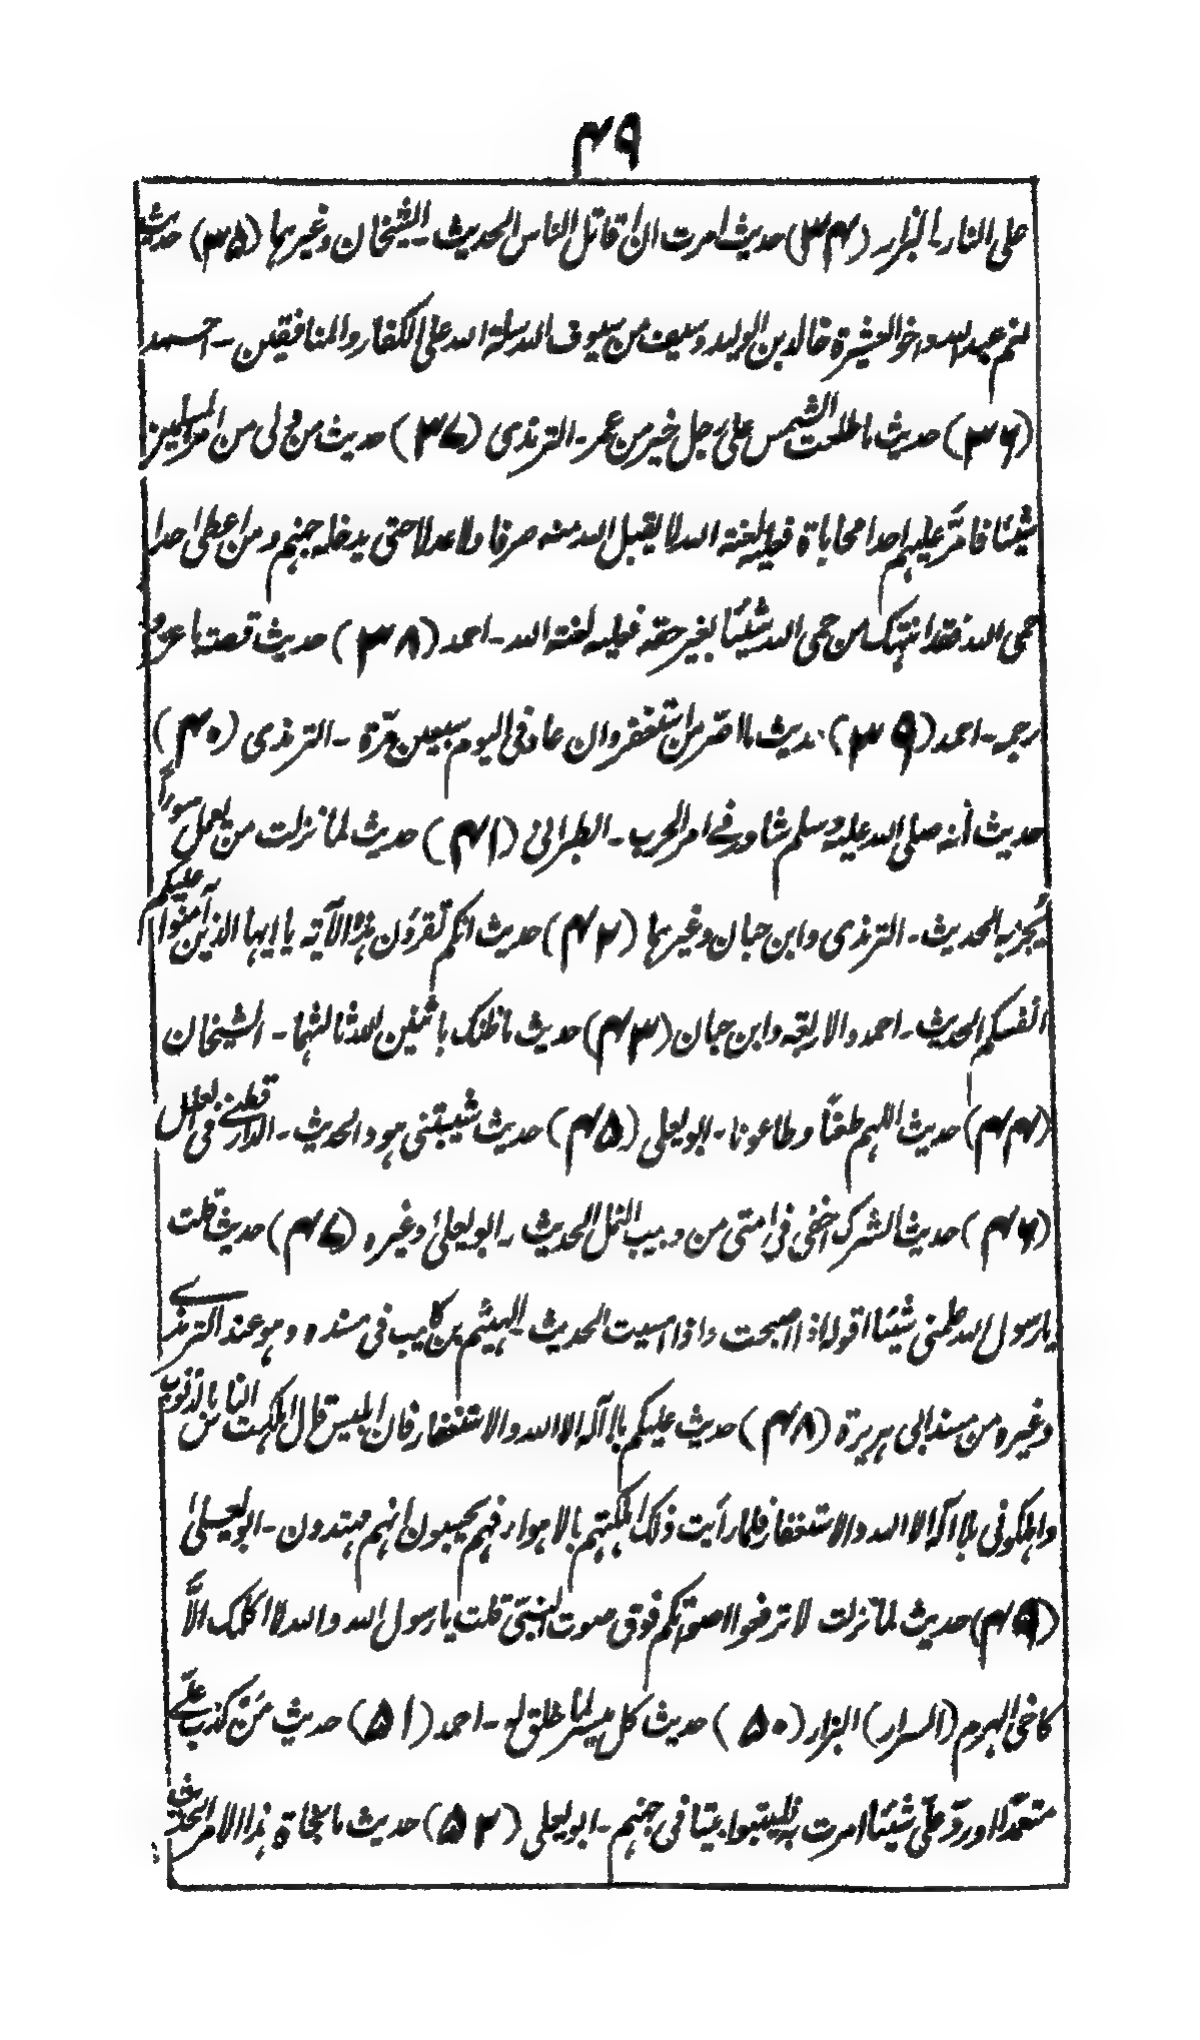 ۴۹
على النار۔ البزار (۳۴) حديث امرت ان اقاتل الناس الحديث۔ الشيخان وغيرہما (۳۵) حديث
نعم عبد اللہ واخو العشيرة خالد بن الوليد وسيف من سيوف اللہ سلہ اللہ على الكفار والمنافقين۔ احمد
(۳۶) حديث ما طلعت الشمس على رجل خير من عمر۔ الترمذى (۳۷) حديث من ولى من امر المسلمين
شيئا فامّر عليہم احدا محاباة فعليہ لعنة اللہ لا يقبل اللہ منہ صرفا ولا عدلا حتى يدخلہ جہنم ومن اعطى احدا
حمى اللہ فقد انتہك من حمى اللہ شيئا بغير حقہ فعليہ لعنة اللہ۔ احمد (۳۸) حديث قصة ماعز و
رجمہ۔ احمد (۳۹) حديث ما اصرّ من استغفر وان عاد فى اليوم سبعين مرّة۔ الترمذى (۴۰)
حديث أنہ صلى اللہ عليہ وسلم شاور فے امر الحرب۔ الطبرانى (۴۱) حديث لما نزلت من يعمل سوءاً
يُجز بہ الحديث۔ الترمذى وابن حبان وغيرہما (۴۲) حديث انكم تقرؤن ہذہ الآية يا ايہا الذين آمنوا عليكم
انفسكم الحديث۔ احمد والاربعہ وابن حبان (۴۳) حديث ما ظنك باثنين اللہ ثالثہما۔ الشيخان
(۴۴) حديث اللہم طعنًا وطاعونا۔ ابو يعلى (۴۵) حديث شيبتنى ہود الحديث۔ الدارقطنے فى العلل
(۴۶) حديث الشرك اخفى فى امتى من دبيب النمل الحديث۔ ابو يعلىٰ وغيرہ (۴۷) حديث قلت
يا رسول اللہ علمنى شيئا اقولہ اذا اصبحت واذا امسيت الحديث۔ الہيثم بن كليب فى مسندہ وہو عند الترمذے
وغيرہ من مسند ابى ہريرة (۴۸) حديث عليكم بلا الہ الا اللہ والاستغفار فان ابليس قال اہلكت الناس بالذنوب
واہلكونى بلا الہ الا اللہ والاستغفار فلما رأيت ذلك اہلكتہم بالاہواء فہم يحسبون انہم مہتدون۔ ابو يعلىٰ
(۴۹) حديث لما نزلت لا ترفعوا اصواتكم فوق صوت النبىّ قلت يا رسول اللہ واللہ لا اكلمك الاّ
كاخى الہرم (السرار) البزار (۵۰) حديث كل ميسر لما خلق لہ۔ احمد (۵۱) حديث مَنْ كذب علىّ
متعمّدا اورد علىّ شيئا امرت بہ فليتبوا بيتا فى جہنم۔ ابو يعلى (۵۲) حديث ما نجاة ہذا الامر الحديث